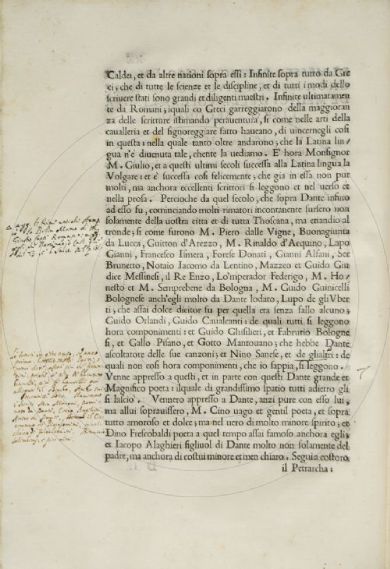 Caldei, et da altre nationi sopra essi: Infinite sopra tutto da Gre
ci; che di tutte le scienze et le discipline, et di tutti i modi dello
scrivere stati sono grandi et diligenti maestri. Infinite ultimamen
te da Romani; iquali co Greci gareggiarono della maggioran
za delle scritture istimando peraventura, si come nelle arti della
cavalleria et del signoreggiare fatto haueano, di uincernegli cosi
in questa: nella quale tanto oltre andarono; che la Latina lin
gua n'è diuenuta tale, chente la uediamo. E' hora Monsignor
M. Giulio, et a questi ultimi secoli successa alla Latina lingua la
Volgare: et e' successa cosi felicemente; che gia in essa non pur
molti, ma anchora eccellenti scrittori si leggono et nel uerso et
nella prosa. Percioche da quel secolo, che sopra Dante infino
ad esso fu, cominciando molti rimatori incontanente sursero non
solamente della uostra citta et di tutta Thoscana, ma etiandio al
tronde; si come furono M. Piero dalle Vigne, Buonagiunta
da Lucca, Guitton d'Arezzo, M. Rinaldo d'Aequino, Lapo
Gianni, Francesco Ismera, Forese Donati, Gianni Alfani, Ser
Brunetto, Notaio Iacomo da Lentino, Mazzeo et Guido Giu
dice Messinesi, il Re Enzo, Lo'mperador Federigo, M. Ho
nesto et M. Semprebene da Bologna, M. Guido Guinicelli
Bolognese anch'egli molto da Dante lodato, Lupo de gli Vber
ti; che assai dolce dicitor fu per quella eta senza fallo alcuno;
Guido Orlandi, Guido Caualcanti: de quali tutti si leggono
hora componimenti: et Guido Ghislieri, et Fabrutio Bologne
si, et Gallo Pisano, et Gotto Mantouano; che hebbe Dante
ascoltatore delle sue canzoni; et Nino Sanese, et de gli altri: de
quali non cosi hora componimenti, che io sappia, si leggono.
Venne appresso a questi, et in parte con questi Dante grande et
Magnifico poeta: ilquale di grandissimo spatio tutti adietro gli
si lascio. Vennero appresso a Dante, anzi pure con esso lui,
ma allui soprauissero, M. Cino uago et gentil poeta, et sopra
tutto amoroso et dolce; ma nel uero di molto minore spirito; et
Dino Frescobaldi poeta a quel tempo assai famoso anchora egli;
et Iacopo Alaghieri figliuol di Dante molto non solamente del
padre, ma anchora di costui minore et men chiaro. Seguio costoro
il Petrarcha: